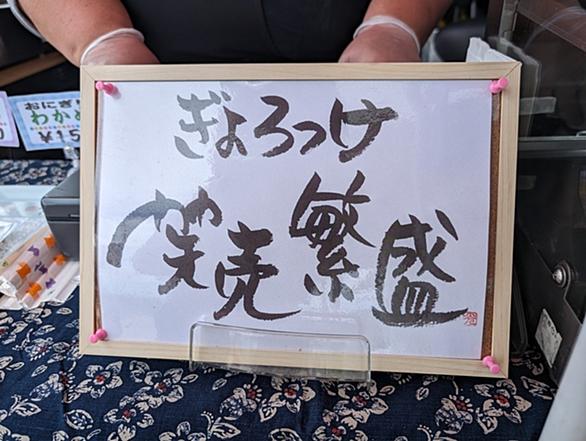 ぎょろっけ
笑売繁盛
おにぎり
わかめ
¥15